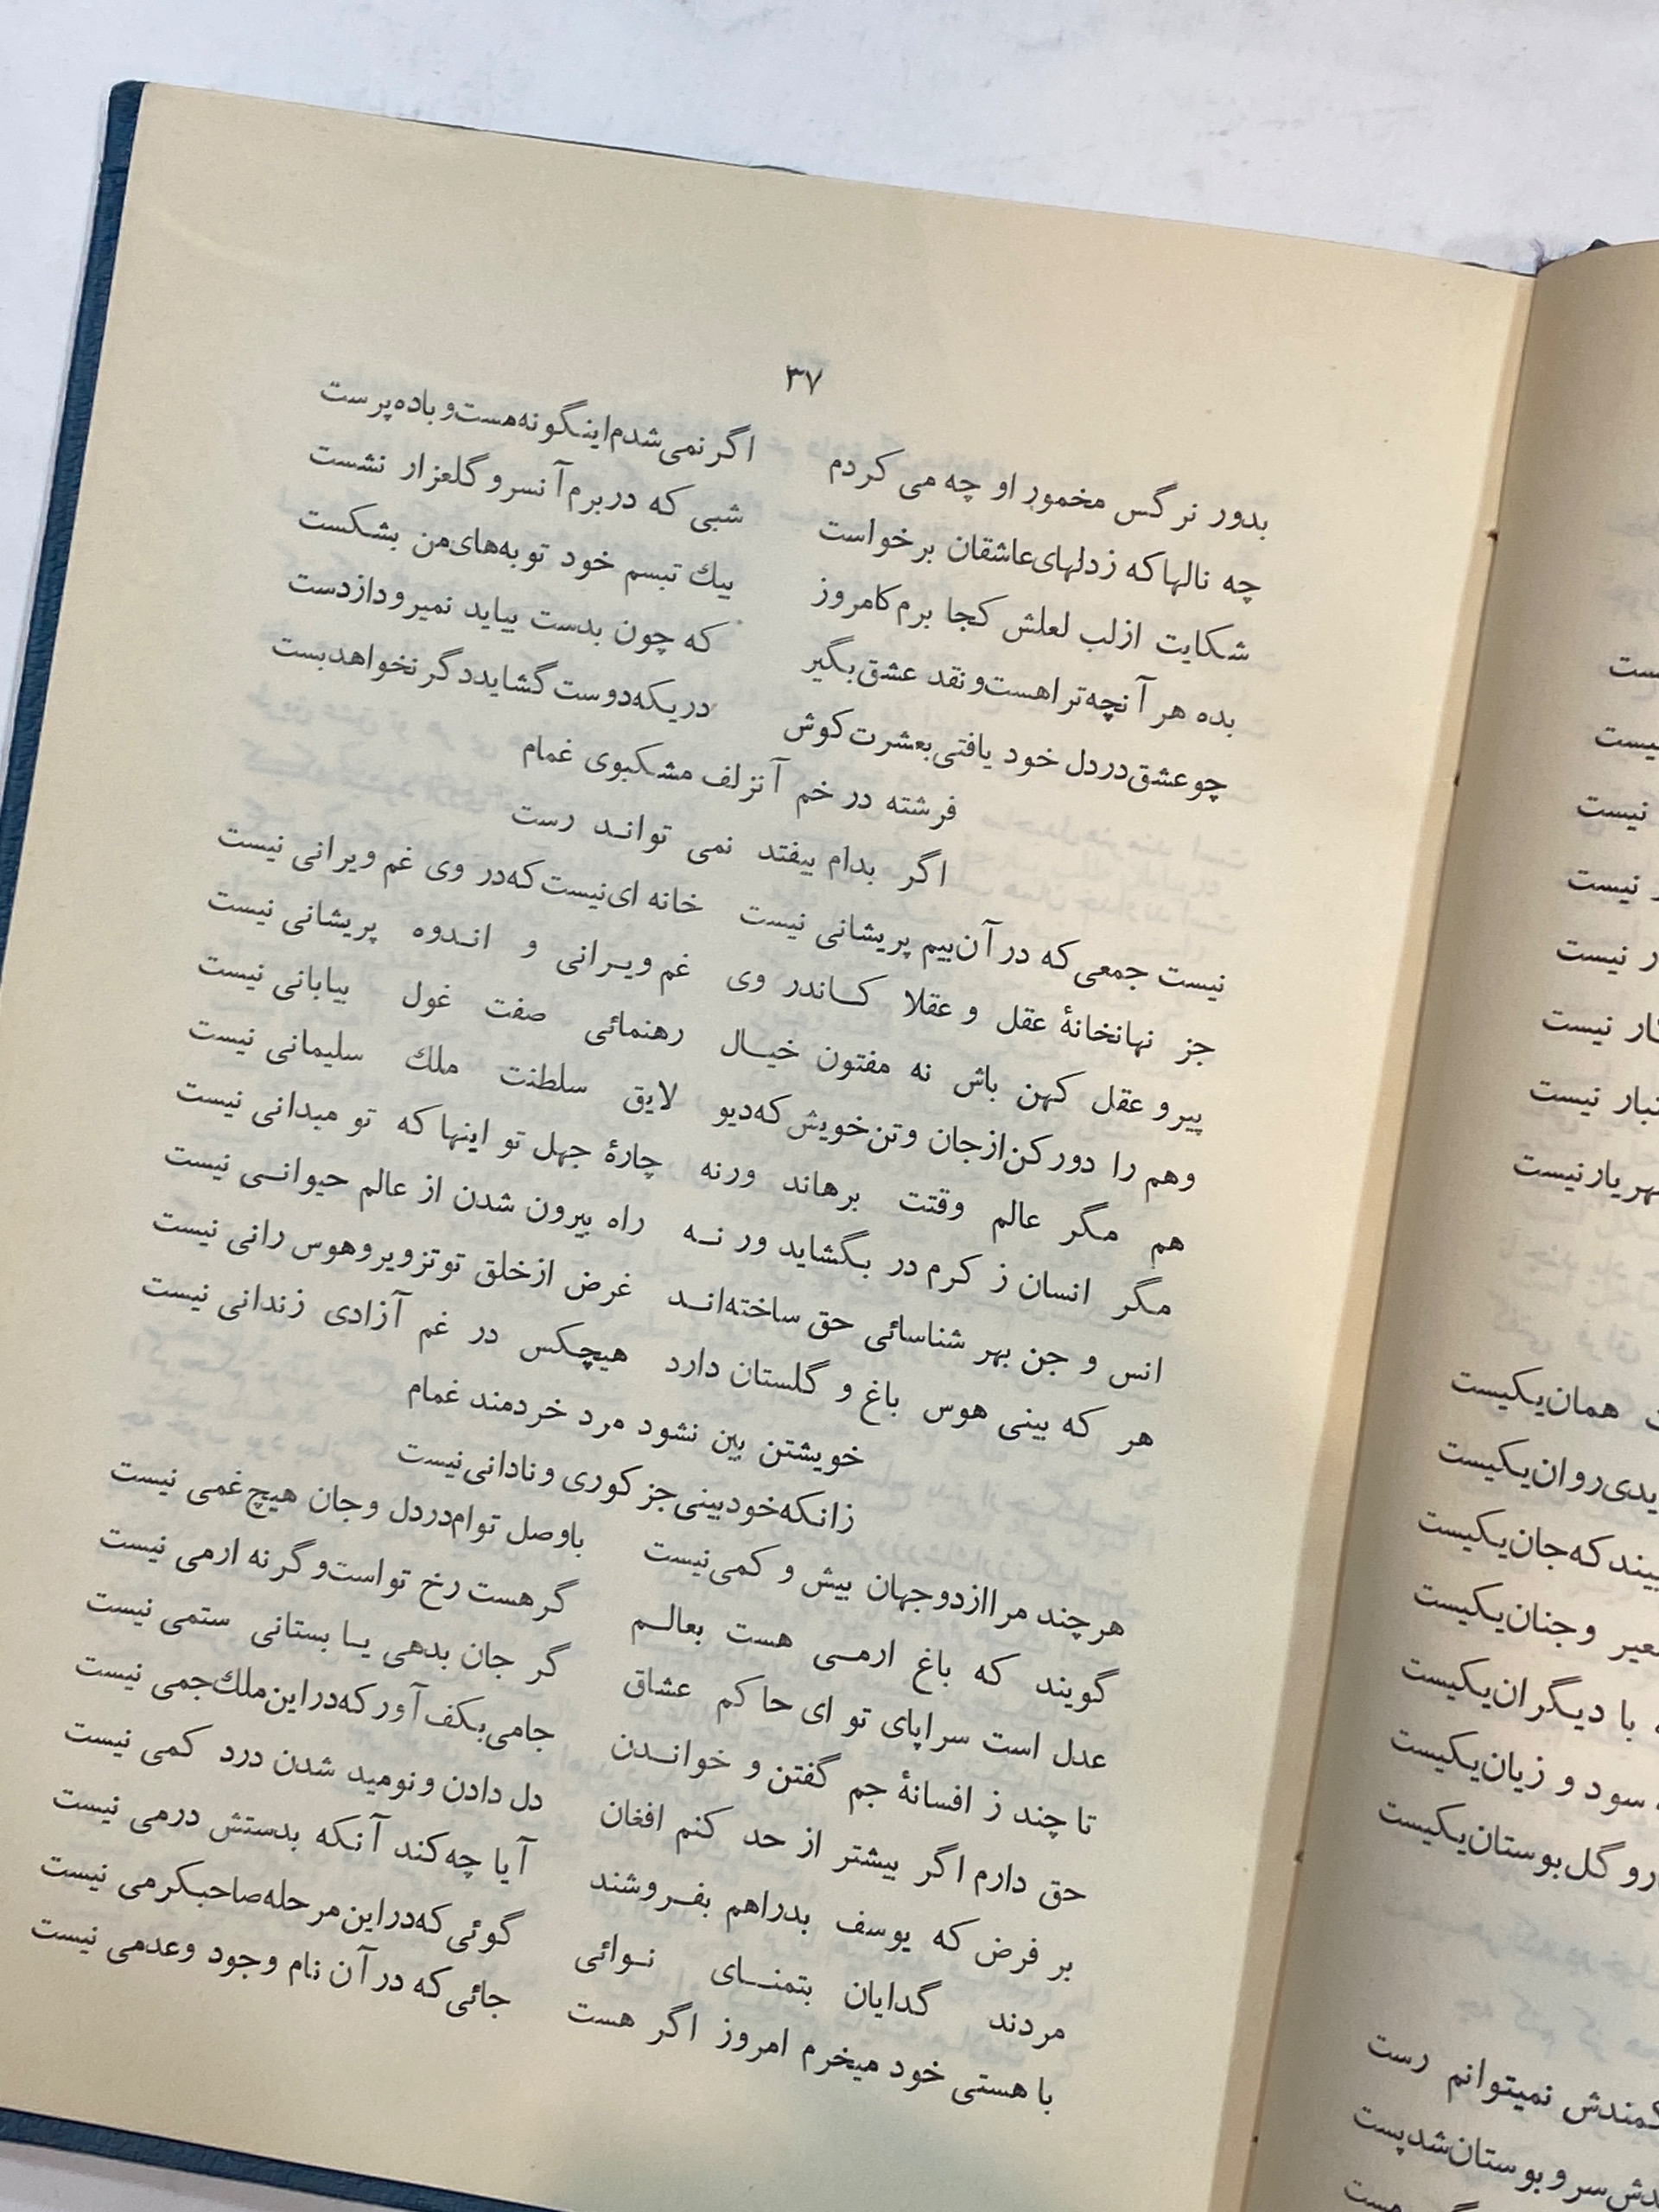 ۳۷
بدور نرگس مخمور او چه می کردم اگر نمی‌شدم اینگونه مست و باده پرست
چه نالها که زدلهای عاشقان برخواست شبی که در برم آنسرو گلعزار نشست
شکایت ازلب لعلش کجا برم کامروز بیك تبسم خود توبه‌های من بشکست
بده هر آنچه تراهست و نقد عشق بگیر که چون بدست بیاید نمیرود ازدست
چو عشق در دل خود یافتی بعشرت کوش دریکه دوست گشاید دگر نخواهد بست
فرشته در خم آنزلف مشکبوی غمام
اگر بدام بیفتد نمی تواند رست
نیست جمعی که در آن بیم پریشانی نیست خانه ای نیست که در وی غم ویرانی نیست
جز نهانخانهٔ عقل و عقلا کاندر وی غم ویرانی و اندوه پریشانی نیست
پیرو عقل کهن باش نه مفتون خیال رهنمائی صفت غول بیابانی نیست
وهم را دور کن از جان و تن خویش که دیو لایق سلطنت ملك سلیمانی نیست
هم مگر عالم وقتت برهاند ورنه چارهٔ جهل تو اینها که تو میدانی نیست
مگر انسان ز کرم در بگشاید ور نه راه بیرون شدن از عالم حیوانی نیست
انس و جن بهر شناسائی حق ساخته‌اند غرض از خلق تو تزویر و هوس رانی نیست
هر که بینی هوس باغ و گلستان دارد هیچکس در غم آزادی زندانی نیست
خویشتن بین نشود مرد خردمند غمام
زانکه خودبینی جز کوری و نادانی نیست
هرچند مرا از دو جهان بیش و کمی نیست با وصل توام در دل و جان هیچ غمی نیست
گویند که باغ ارمی هست بعالم گر هست رخ تو است و گرنه ارمی نیست
عدل است سراپای تو ای حاکم عشاق گر جان بدهی یا بستانی ستمی نیست
تا چند ز افسانهٔ جم گفتن و خواندن جامی بکف آور که در این ملك جمی نیست
حق دارم اگر بیشتر از حد کنم افغان دل دادن و نومید شدن درد کمی نیست
بر فرض که یوسف بدراهم بفروشند آیا چه کند آنکه بدستش درمی نیست
مردند گدایان بتمنای نوائی گوئی که در این مرحله صاحبکرمی نیست
با هستی خود میخرم امروز اگر هست جائی که در آن نام وجود و عدمی نیست
نیست
نیست
نیست
نیست
ر نیست
نیست
نیست
نیست
همان یکیست
روان یکیست
که جان یکیست
و جنان یکیست
با دیگران یکیست
سود و زیان یکیست
گل بوستان یکیست
نمیتوانم رست
سرو بوستان شد پست
هست